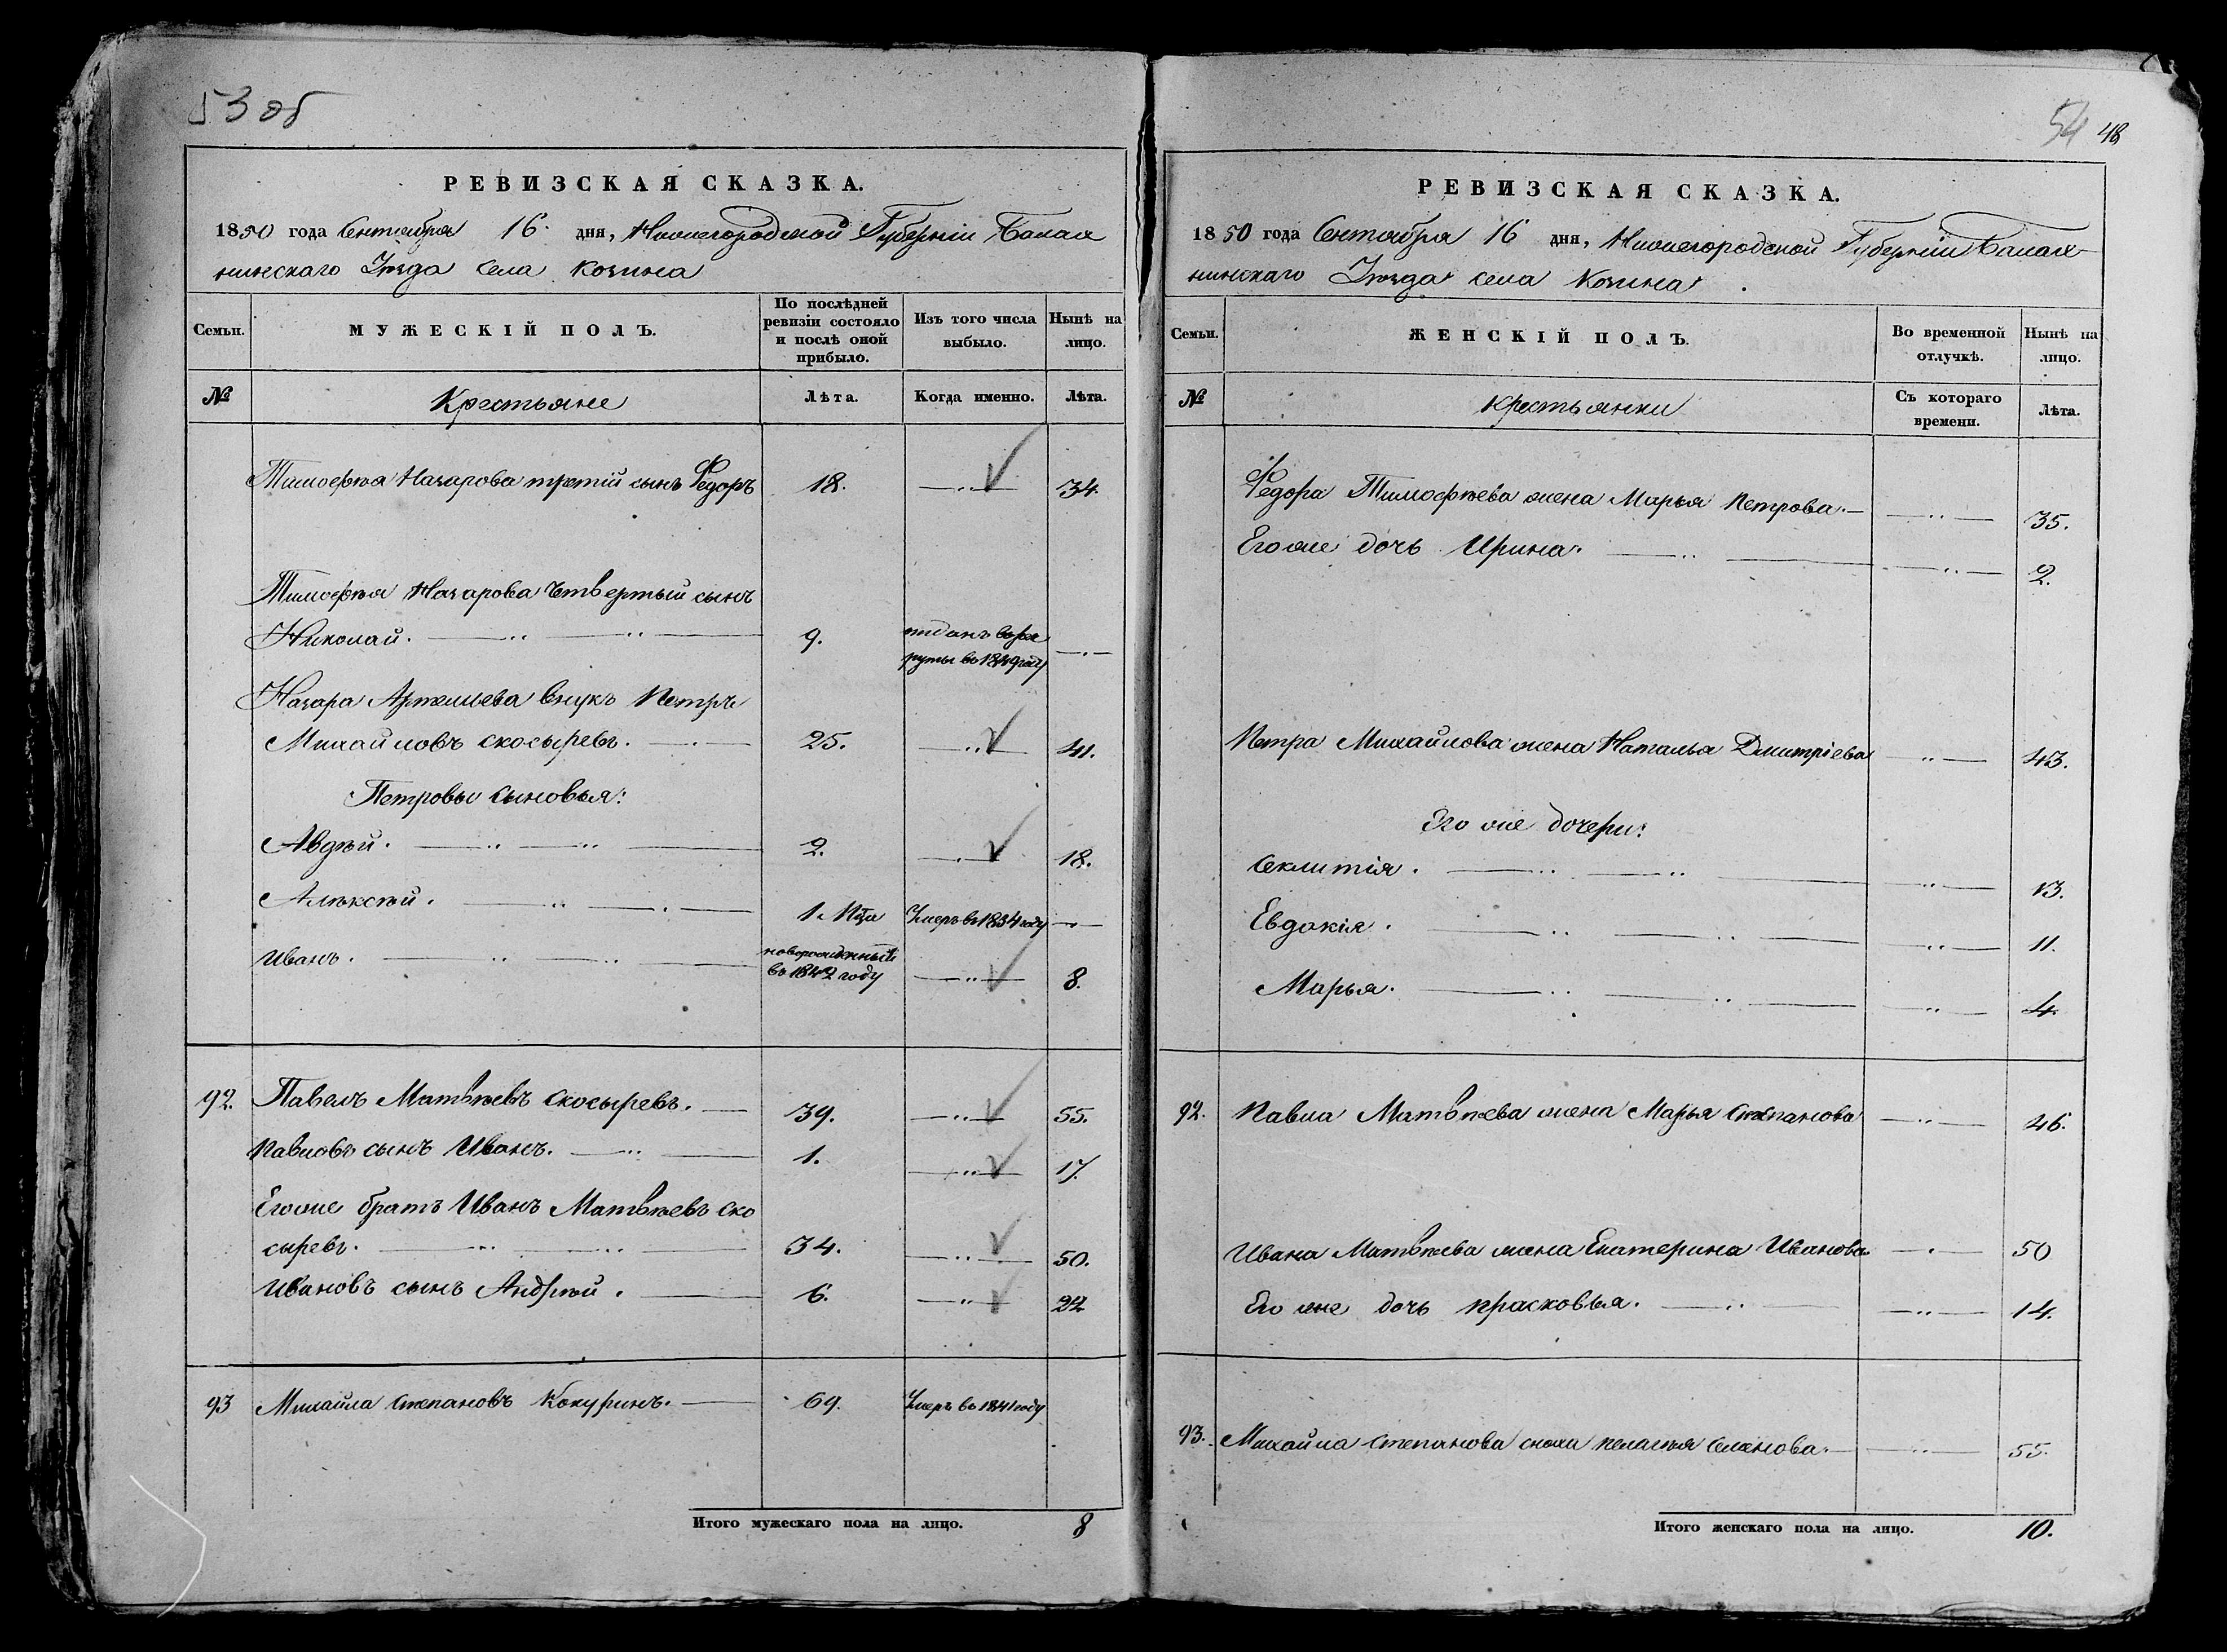 53 об
РЕВИЗСКАЯ СКАЗКА.
1850 года Сентября 16 дня, Нижегородской Губерніи Балах
нинскаго Уѣзда села Козина
Семьи. МУЖЕСКІЙ ПОЛЪ. По послѣдней ревизіи состояло и послѣ оной прибыло. Изъ того числа выбыло. Нынѣ на лицо.
№ Крестьяне Лѣта. Когда именно. Лѣта.
Тимофѣя Назарова третій сынъ Ѳедоръ 18. —"— 34.
Тимофѣя Назарова Четвертый сынъ
Николай. 9. отданъ въ рек
руты въ 1849 году —"—
Назара Артемьева внукъ Петръ
Михайловъ Скосыревъ. 25. —"— 41.
Петровы сыновья:
Авдѣй. 2. —"— 18.
Алѣксѣй. 1. Умеръ въ 1834 году —"—
Иванъ. новорожденный
въ 1842 году —"— 8.
92. Павелъ Матвѣевъ Скосыревъ. 39. —"— 55.
Павловъ сынъ Иванъ. 1. —"— 17.
Егоже братъ Иванъ Матвѣевъ Ско
сыревъ. 34. —"— 50.
Ивановъ сынъ Андрѣй. 6. —"— 22
93 Михайла Степановъ Кокуринъ. 69. Умеръ въ 1841 году
Итого мужескаго пола на лицо. 8
54 48
РЕВИЗСКАЯ СКАЗКА.
1850 года Сентября 16 дня, Нижегородской Губерніи Балах
нинскаго Уѣзда села Козина
Семьи. ЖЕНСКІЙ ПОЛЪ. Во временной отлучкѣ. Нынѣ на лицо.
№ Крестьянки Съ котораго времени. Лѣта.
Ѳедора Тимофѣева жена Марья Петрова. —"— 35.
Егоже дочь Ирина. —"— 2.
Петра Михайлова жена Наталья Дмитріева —"— 43.
Его же дочери:
Секлитія. —"— 13.
Евдокія. —"— 11.
Марья. —"— 4.
92. Павла Матвѣева жена Марья Степанова —"— 46.
Ивана Матвѣева жена Екатерина Иванова —"— 50
Его же дочь Прасковья. —"— 14.
93. Михайла Степанова сноха Пелагѣя Семенова. —"— 55.
Итого женскаго пола на лицо. 10.